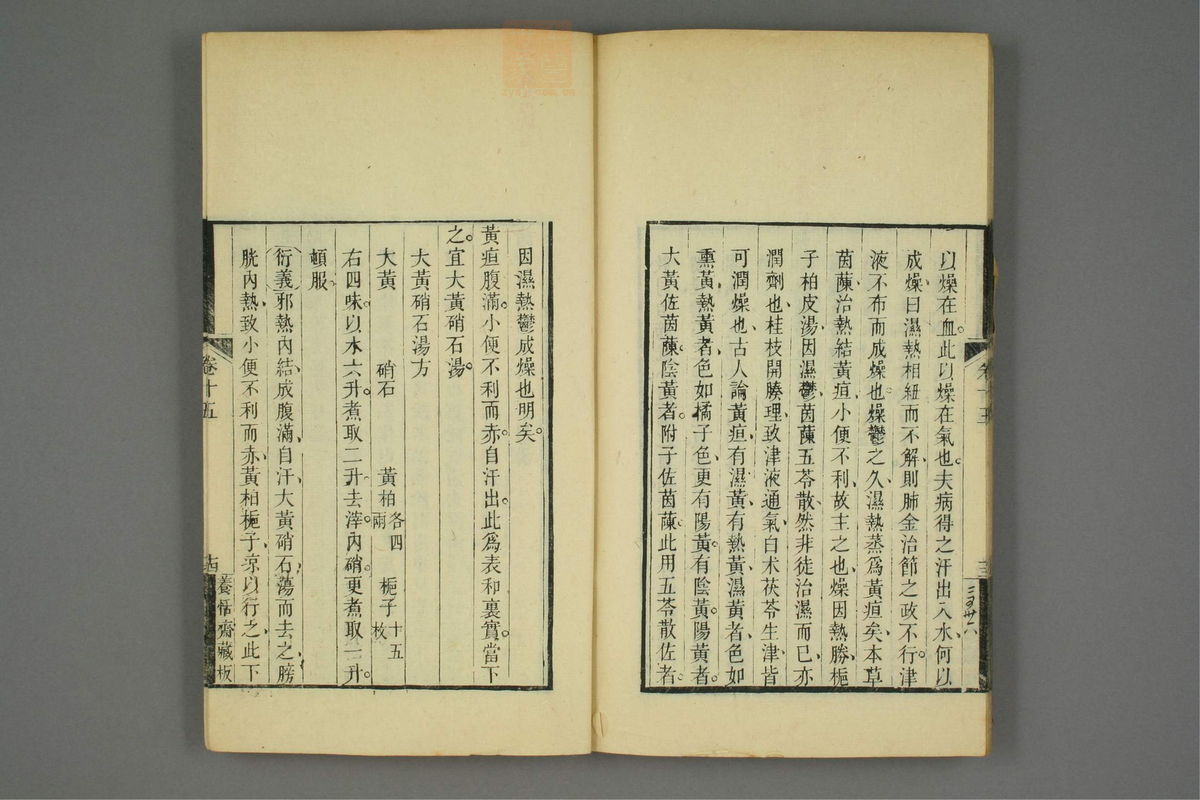 以燥在血。此以燥在氣也。夫病得之汗出入水、何以
成燥曰濕熱相紐而不解、則肺金治節之政不行。津
液不布而成燥也。燥鬱之久、濕熱蒸爲黃疸矣、本草
茵蔯治熱結黃疸、小便不利、故主之也、燥因熱勝、梔
子柏皮湯、因濕鬱、茵蔯五苓散、然非徒治濕而已、亦
潤劑也、桂枝開腠理、致津液通氣、白朮茯苓生津、皆
可潤燥也、古人論黃疸、有濕黃、有熱黃、濕黃者、色如
熏黃、熱黃者、色如橘子色、更有陽黃。有陰黃。陽黃者。
大黃佐茵蔯。陰黃者。附子佐茵蔯。此用五苓散佐者。
卷十五
十三
因濕熱鬱成燥也明矣。
黃疸腹滿。小便不利而赤。自汗出。此爲表和裏實。當下
之。宜大黃硝石湯。
大黃硝石湯方
大黃 硝石 黃柏各四兩 梔子十五枚
右四味。以水六升。煮取二升。去滓。內硝。更煮取一升。
頓服。
衍義邪熱內結、成腹滿、自汗、大黃硝石蕩而去之、膀
胱內熱、致小便不利而赤、黃柏梔子、涼以行之、此下
卷十五
十四
養恬齋藏板